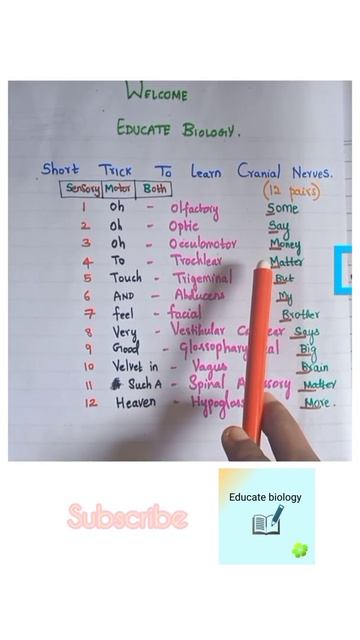 WELCOME
EDUCATE BIOLOGY.
Short Trick To Learn Cranial Nerves.
Sensory Motor Both (12 pairs)
1 Oh - Olfactory Some
2 Oh - Optic Say
3 Oh - Occulomotor Money
4 To - Trochlear Matter
5 Touch - Trigeminal But
6 AND - Abducens My
7 feel - facial Brother
8 Very - Vestibular Says
9 Good - Big
10 Velvet in - Vagus Brain
11 Such A - Spinal Matter
12 Heaven - More.
Subscribe
Educate biology